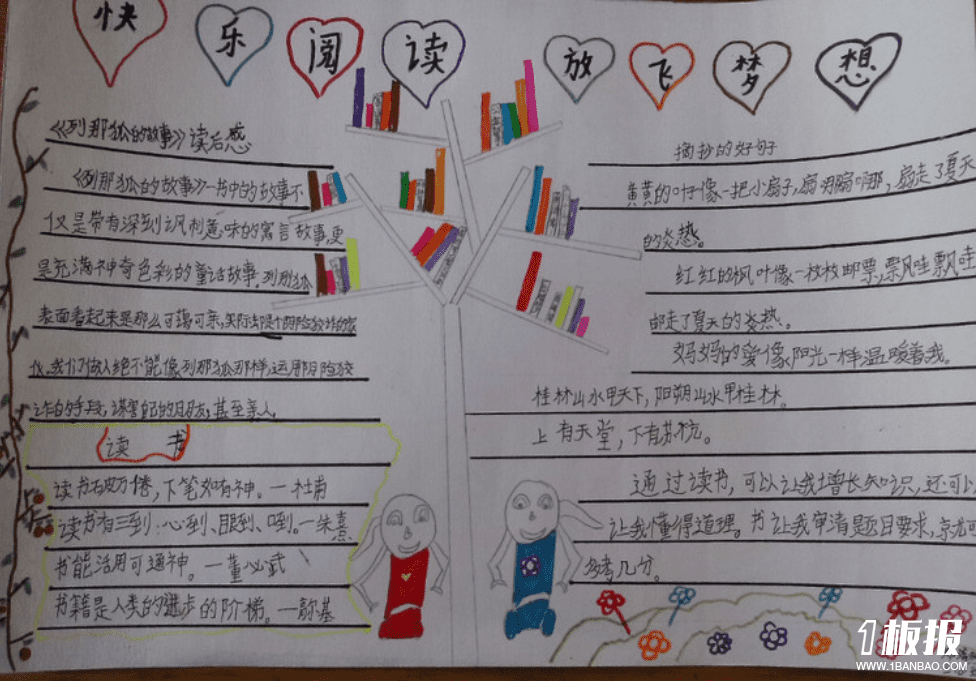 快乐阅读 放飞梦想
《列那狐的故事》读后感
《列那狐的故事》一书中的故事不
仅是带有深刻讽刺意味的寓言故事,更
是充满神奇色彩的童话故事,列那狐
表面看起来是那么可蔼可亲,实际却是个阴险狡诈的家
伙,我们做人绝不能像列那狐那样,运用阴险狡
诈的手段,谋害自己的朋友,甚至亲人。
读 书
读书破万倦,下笔如有神。一杜甫
读书有三到:心到、眼到、口到。一朱熹
书能活用可通神。一董必武
书籍是人类的进步的阶梯。一高尔基
摘抄的好句子
黄黄的叶像一把小扇子,扇哪扇哪,扇走了夏天
的炎热。
红红的枫叶像一枚枚邮票,飘哇飘哇
邮走了夏天的炎热。
妈妈的爱像阳光一样温暖着我。
桂林山水甲天下,阳朔山水甲桂林。
上有天堂,下有苏杭。
通过读书,可以让我增长知识,还可以
让我懂得道理。书让我审清题目要求,
多考几分。
1板报
WWW.1BANBAO.COM